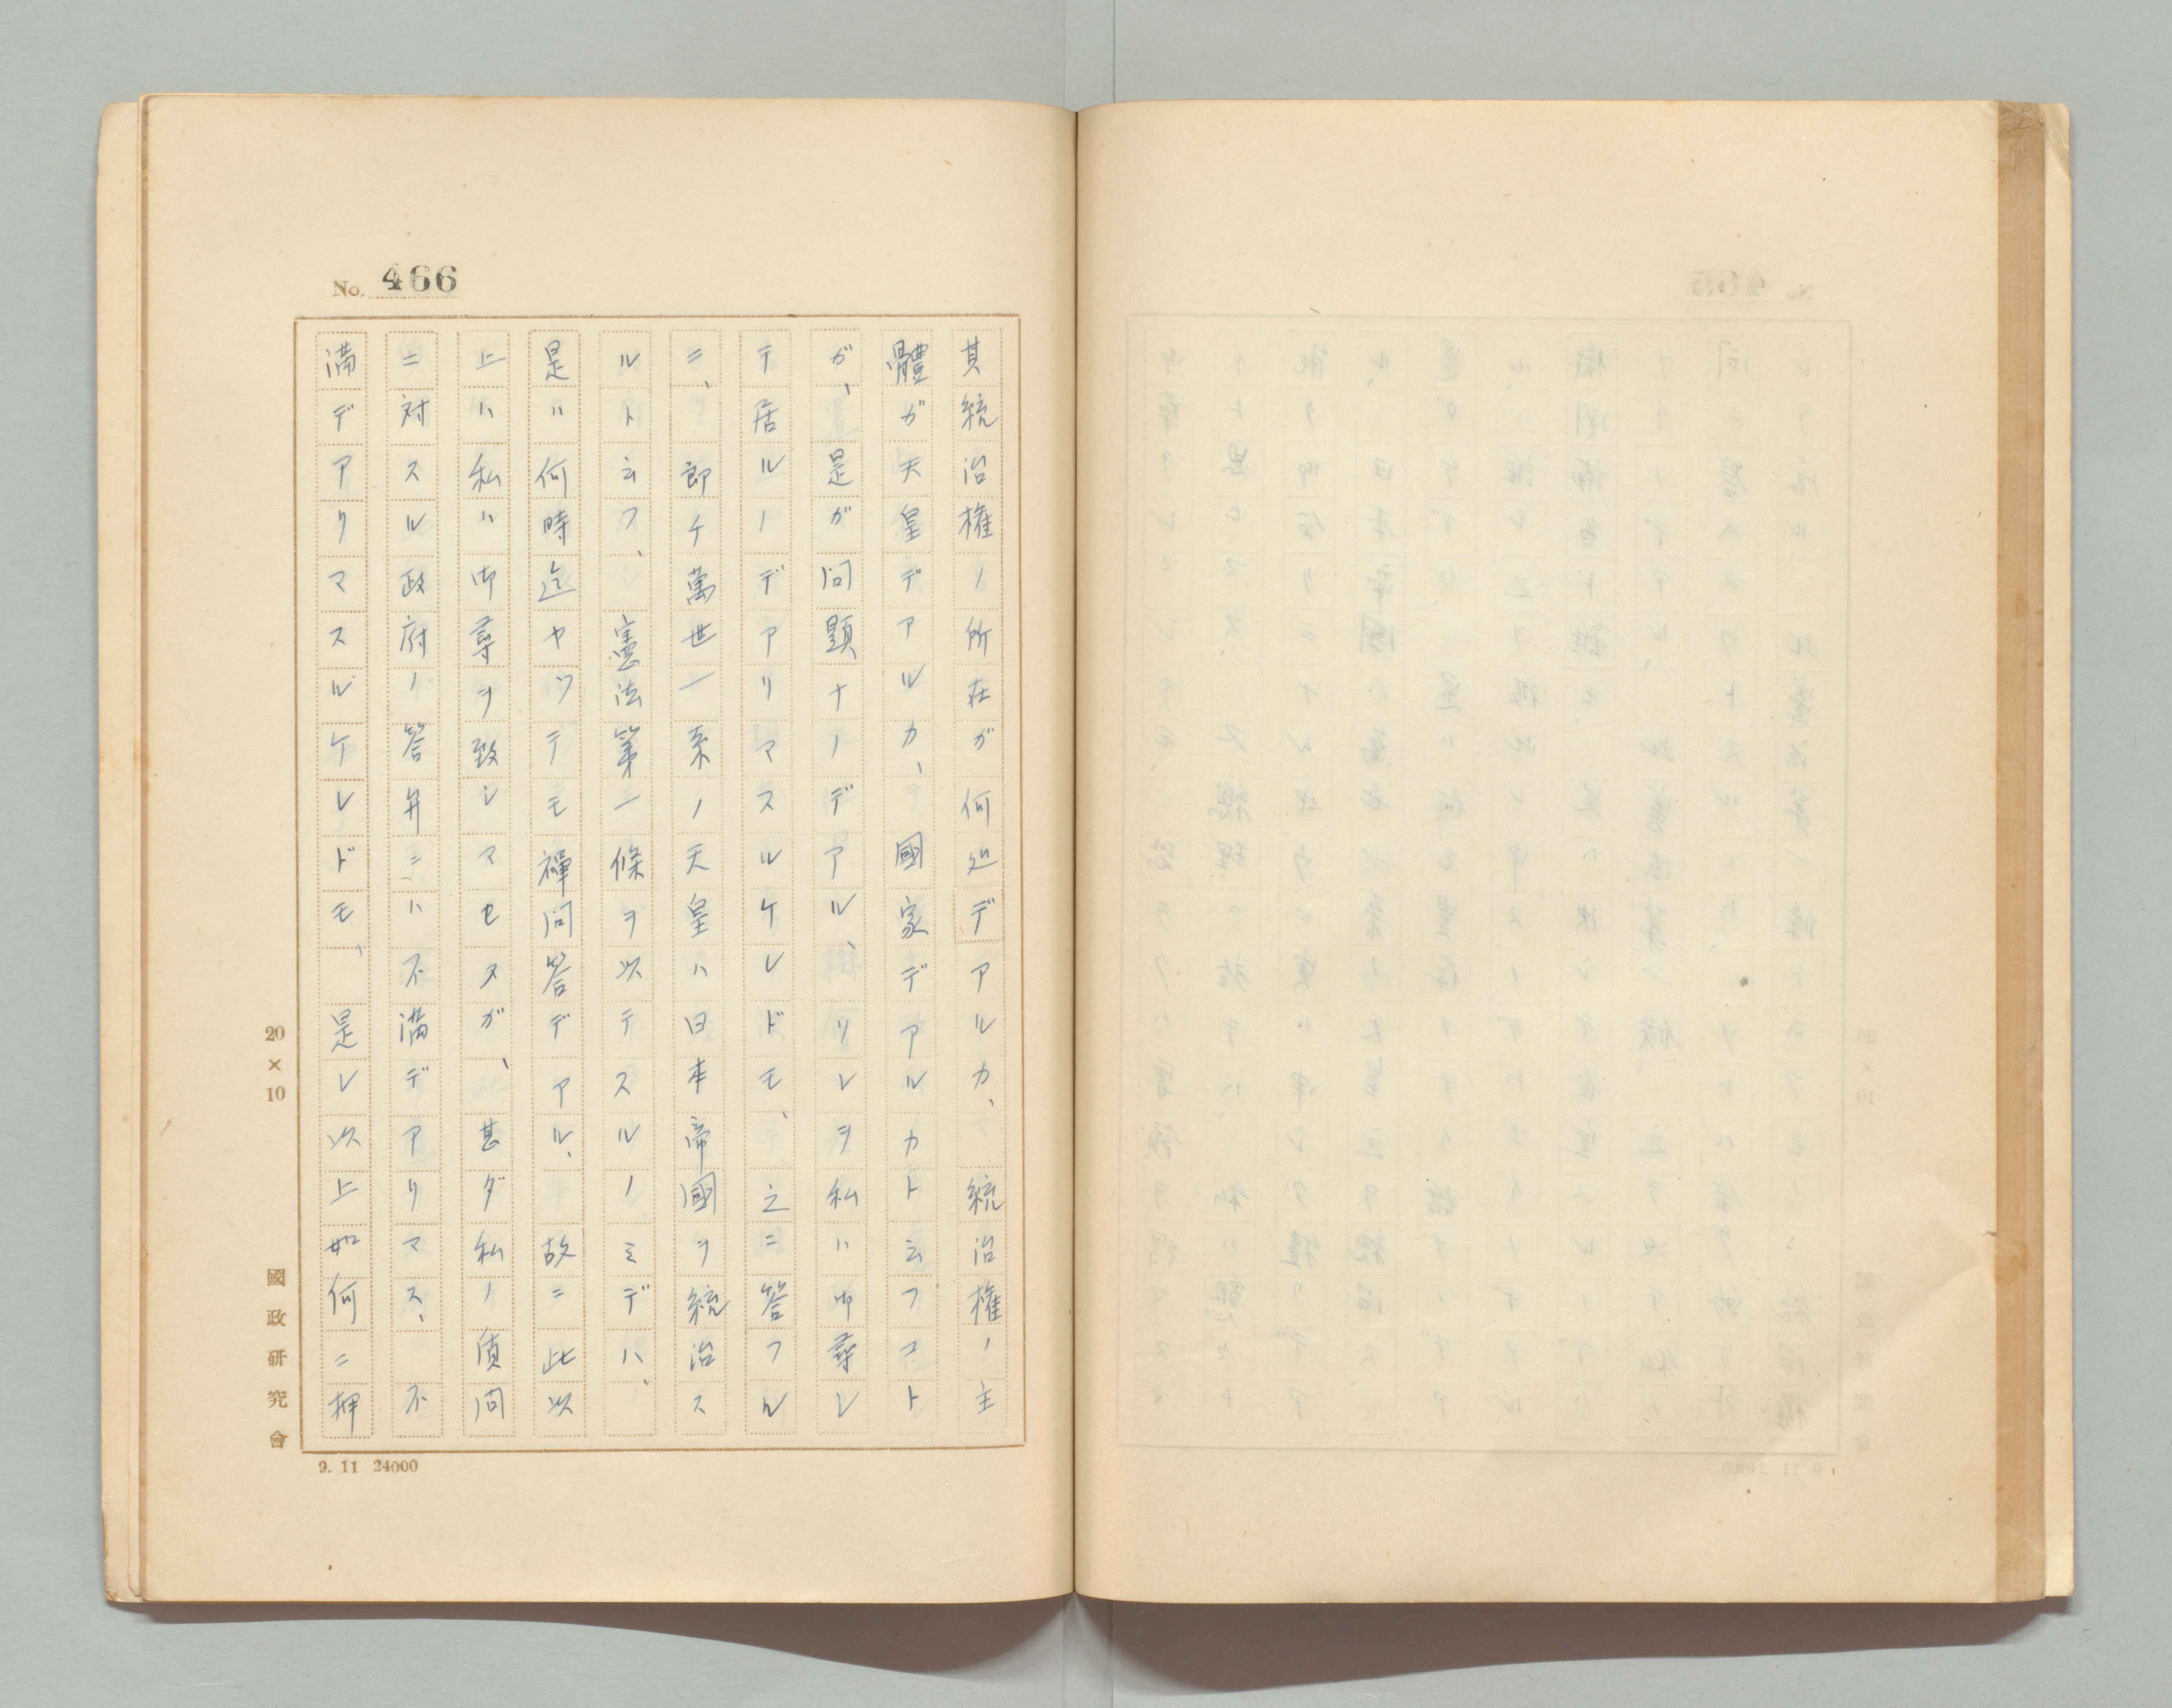 No. 466
其統治権ノ所在ガ何処デアルカ、統治権ノ主
體ガ天皇デアルカ、國家デアルカト云フコト
ガ、是ガ問題ナノデアル、ソレヲ私ハ御尋シ
テ居ルノデアリマスルケレドモ、之ニ答フル
ニ、即チ萬世一系ノ天皇ハ日本帝國ヲ統治ス
ルト云フ、憲法第一條ヲ以テスルノミデハ、
是ハ何時迄ヤツテモ禅問答デアル、故ニ此以
上ハ私ハ御尋ヲ致シマセヌガ、甚ダ私ノ質問
ニ対スル政府ノ答弁ニハ不満デアリマス、不
満デアリマスルケレドモ、是レ以上如何ニ押
20×10
國政研究會
9. 11 24000